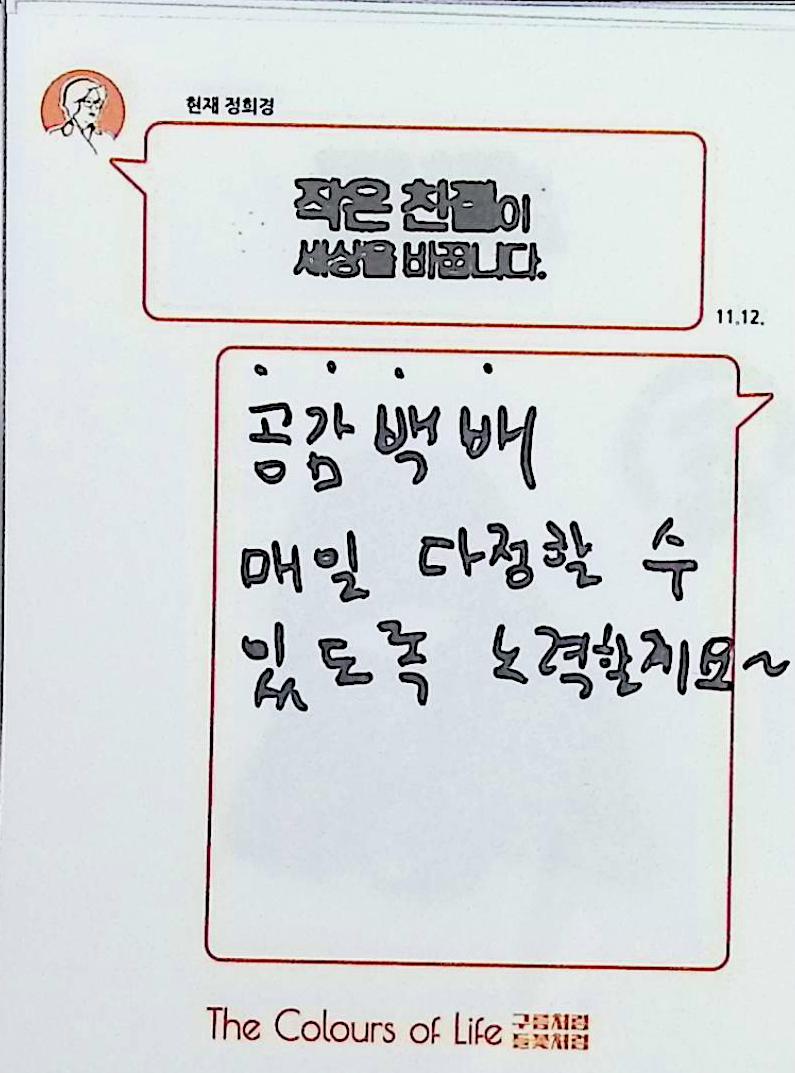 현재 정희경
작은 친절이
세상을 바꿉니다.
11.12.
공감백배
매일 다정할 수
있도록 노력할게요~
The Colours of Life 구름처럼
들꽃처럼